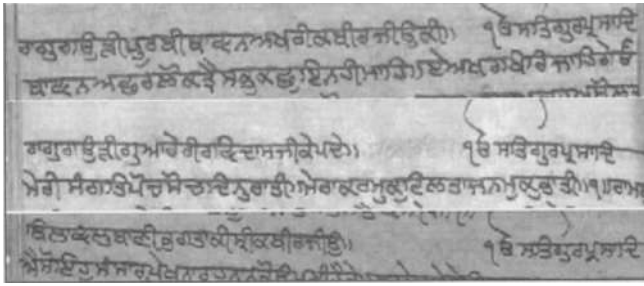 ਰਾਗੁਗਉੜੀਪੂਰਬੀਬਾਵਨਅਖਰੀਕਬੀਰਜੀਉਕੀ॥ ੴ ਸਤਿਗੁਰਪ੍ਰਸਾਦਿ
ਬਾਵਨਅਛਰਲੋਕਤ੍ਰੈਸਭੁਕਛੁਇਨਹੀਮਾਹਿ॥ਏਅਖਰਖਿਰਿਜਾਹਿਗੇਓ
ਰਾਗੁਗਉੜੀਗੁਆਰੇਰੀਰਵਿਦਾਸਜੀਕੇਪਦੇ॥ ੴ ਸਤਿਗੁਰਪ੍ਰਸਾਦਿ
ਮੇਰੀਸੰਗਤਿਪੋਚਸੋਚਦਿਨੁਰਾਤੀ॥ਮੇਰਾਕਰਮੁਕੁਟਿਲਤਾਜਨਮੁਕੁਭਾਤੀ॥੧॥ਰਾਮ
ਬਿਲਾਵਲੁਬਾਣੀਭਗਤਾਕੀਸ੍ਰੀਕਬੀਰਜੀਉ॥ ੴ ਸਤਿਗੁਰਪ੍ਰਸਾਦਿ
ਐਸੋਇਹੁਸੰਸਾਰੁਪੇਖਨਾਰਹਨੁਨਕੋਊ